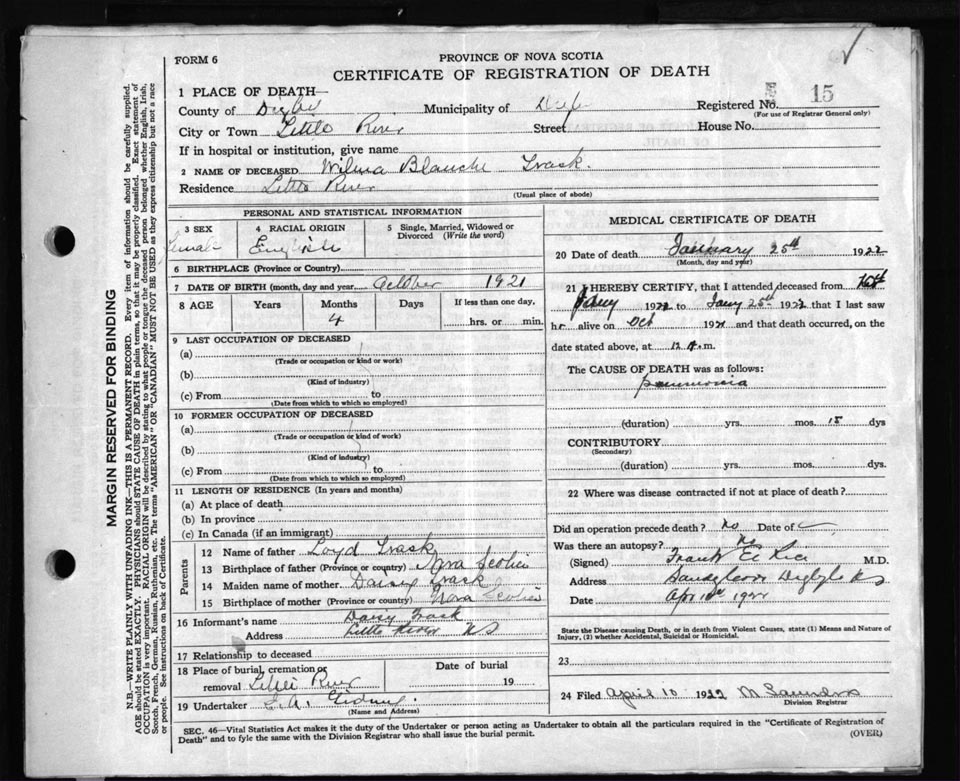 FORM 6
PROVINCE OF NOVA SCOTIA
CERTIFICATE OF REGISTRATION OF DEATH
1 PLACE OF DEATH—
County of Digby Municipality of Registered No. 15
(For use of Registrar General only)
City or Town Little River Street House No.
If in hospital or institution, give name
2 NAME OF DECEASED Wilma Blanche Trask.
Residence Little River
(Usual place of abode)
PERSONAL AND STATISTICAL INFORMATION
3 SEX 4 RACIAL ORIGIN 5 Single, Married, Widowed or Divorced (Write the word)
Female English
6 BIRTHPLACE (Province or Country)
7 DATE OF BIRTH (month, day and year) October 1921
8 AGE Years Months Days If less than one day,
4 hrs. or min.
9 LAST OCCUPATION OF DECEASED
(a)
(Trade or occupation or kind or work)
(b)
(Kind of industry)
(c) From to
(Date from which to which so employed)
10 FORMER OCCUPATION OF DECEASED
(a)
(Trade or occupation or kind of work)
(b)
(Kind of industry)
(c) From to
(Date from which to which so employed)
11 LENGTH OF RESIDENCE (In years and months)
(a) At place of death
(b) In province
(c) In Canada (if an immigrant)
Parents
12 Name of father Loyd Trask
13 Birthplace of father (Province or country) Nova Scotia
14 Maiden name of mother Daisey Trask
15 Birthplace of mother (Province or country) Nova Scotia
16 Informant's name Daisy Trask
Address Little River NS
17 Relationship to deceased
18 Place of burial, cremation or Date of burial
removal Little River 19
19 Undertaker
(Name and Address)
MEDICAL CERTIFICATE OF DEATH
20 Date of death January 25th 1922
(Month, day and year)
21 I HEREBY CERTIFY, that I attended deceased from
Jany 1922 to Jany 25th 1922 that I last saw
her alive on Oct 1921 and that death occurred, on the
date stated above, at 12 A.m.
The CAUSE OF DEATH was as follows:
pneumonia
(duration) yrs. mos. 15 dys
CONTRIBUTORY
(Secondary)
(duration) yrs. mos. dys.
22 Where was disease contracted if not at place of death?
Did an operation precede death? No Date of
Was there an autopsy? No
(Signed) Frank E Rice M.D.
Address Sandy Cove Digby NS
Date Apr 10th 1922
State the Disease causing Death, or in death from Violent Causes, state (1) Means and Nature of
Injury, (2) whether Accidental, Suicidal or Homicidal.
23
24 Filed April 10 1922 M Saunders
Division Registrar
SEC. 46—Vital Statistics Act makes it the duty of the Undertaker or person acting as Undertaker to obtain all the particulars required in the "Certificate of Registration of
Death" and to fyle the same with the Division Registrar who shall issue the burial permit. (OVER)
MARGIN RESERVED FOR BINDING
N.B.—WRITE PLAINLY WITH UNFADING INK—THIS IS A PERMANENT RECORD. Every item of information should be carefully supplied.
AGE should be stated EXACTLY. PHYSICIANS should STATE CAUSE OF DEATH in plain terms, so that it may be properly classified. Exact statement of
OCCUPATION is very important. RACIAL ORIGIN will be described by stating to what people or tongue the deceased person belonged whether English, Irish,
Scotch, French, German, Russian, Ruthenian, etc. The terms "AMERICAN" OR "CANADIAN" MUST NOT BE USED as they express citizenship but not a race
or people. See instructions on back of Certificate.